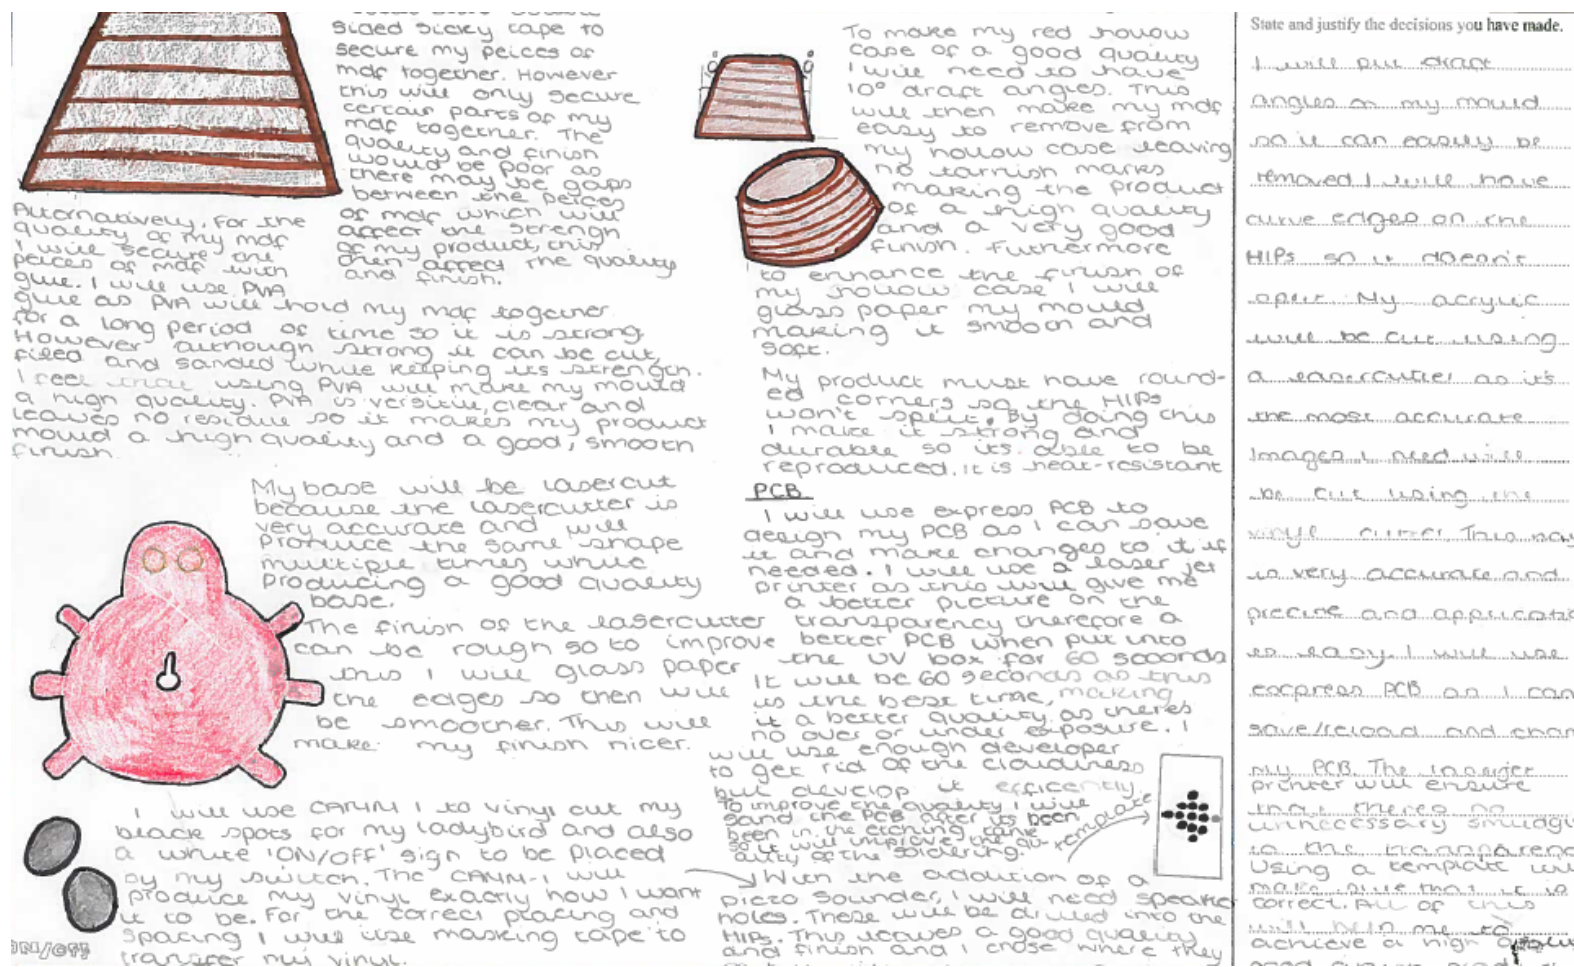 sided sicky tape to
secure my peices of
mdf together. However
this will only secure
certain parts of my
mdf together. The
quality and finish
would be poor as
there may be gaps
between the peices
of mdf which will
affect the strengh
of my product, this
then affect the quality
and finish.
Alternatively, for the
quality of my mdf
I will secure the
peices of mdf with
glue. I will use PVA
glue as PVA will hold my mdf together
for a long period of time so it is strong.
However although strong it can be cut,
filed and sanded while keeping its strength.
I feel that using PVA will make my mould
a high quality. PVA is versitile, clear and
leaves no residue so it makes my product
mould a high quality and a good, smooth
finish.
My base will be lasercut
because the lasercutter is
very accurate and will
produce the same shape
multiple times while
producing a good quality
base.
The finish of the lasercutter
can be rough so to improve
this I will glass paper
the edges so then will
be smoother. This will
make my finish nicer.
I will use CAMM 1 to vinyl cut my
black spots for my ladybird and also
a white 'ON/OFF' sign to be placed
by my switch. The CAMM-1 will
produce my vinyl exactly how I want
it to be. For the correct placing and
spacing I will use masking tape to
transfer my vinyl.
ON/OFF
To make my red hollow
case of a good quality
I will need to have
10° draft angles. This
will then make my mdf
easy to remove from
my hollow case leaving
no tarnish marks
making the product
of a high quality
and a very good
finish. Futhermore
to enhance the finish of
my hollow case I will
glass paper my mould
making it smooth and
soft.
My product must have round-
ed corners so the HIPs
won't split. By doing this
I make it strong and
durable so its able to be
reproduced. It is heat-resistant
PCB
I will use express PCB to
design my PCB as I can save
it and make changes to it if
needed. I will use a laser jet
printer as this will give me
a better picture on the
transparency therefore a
better PCB when put into
the UV box for 60 seconds
It will be 60 seconds as this
is the best time, making
it a better quality as theres
no over or under exposure. I
will use enough developer
to get rid of the cloudiness
but develop it efficently.
To improve the quality I will
sand the PCB after its been
been in the etching tank
so it will improve the qu-
ality of the soldering.
template
With the addition of a
piezo sounder, I will need speaker
holes. These will be drilled into the
HIPs. This leaves a good quality
and finish and I chose where they
State and justify the decisions you have made.
I will put draft
angles on my mould
so it can easily be
removed I will have
curve edges on the
HIPs so it doesn't
split. My acrylic
will be cut using
a lasercutter as it's
the most accurate
Images I need will
be cut using the
vinyl cutter. This way
is very accurate and
precise and
is easy. I will use
express PCB as I can
save/reload and
my PCB. The laserjet
printer will ensure
that theres no
unnecessary
in the
Using a template
make sure that it is
correct. All of this
will help me to
achieve a high